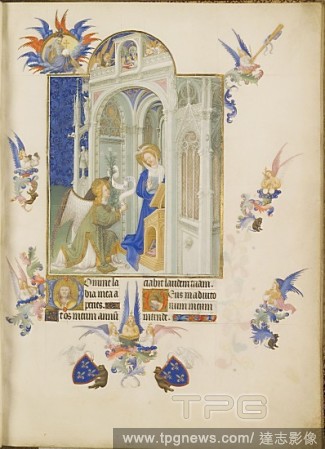 Domine la
bia mea a
peries.
Et os meum annun
ciabit laudem tuam.
Deus in adiuto
rium meum
intende.
TPG
www.tpgnews.com / 達志影像